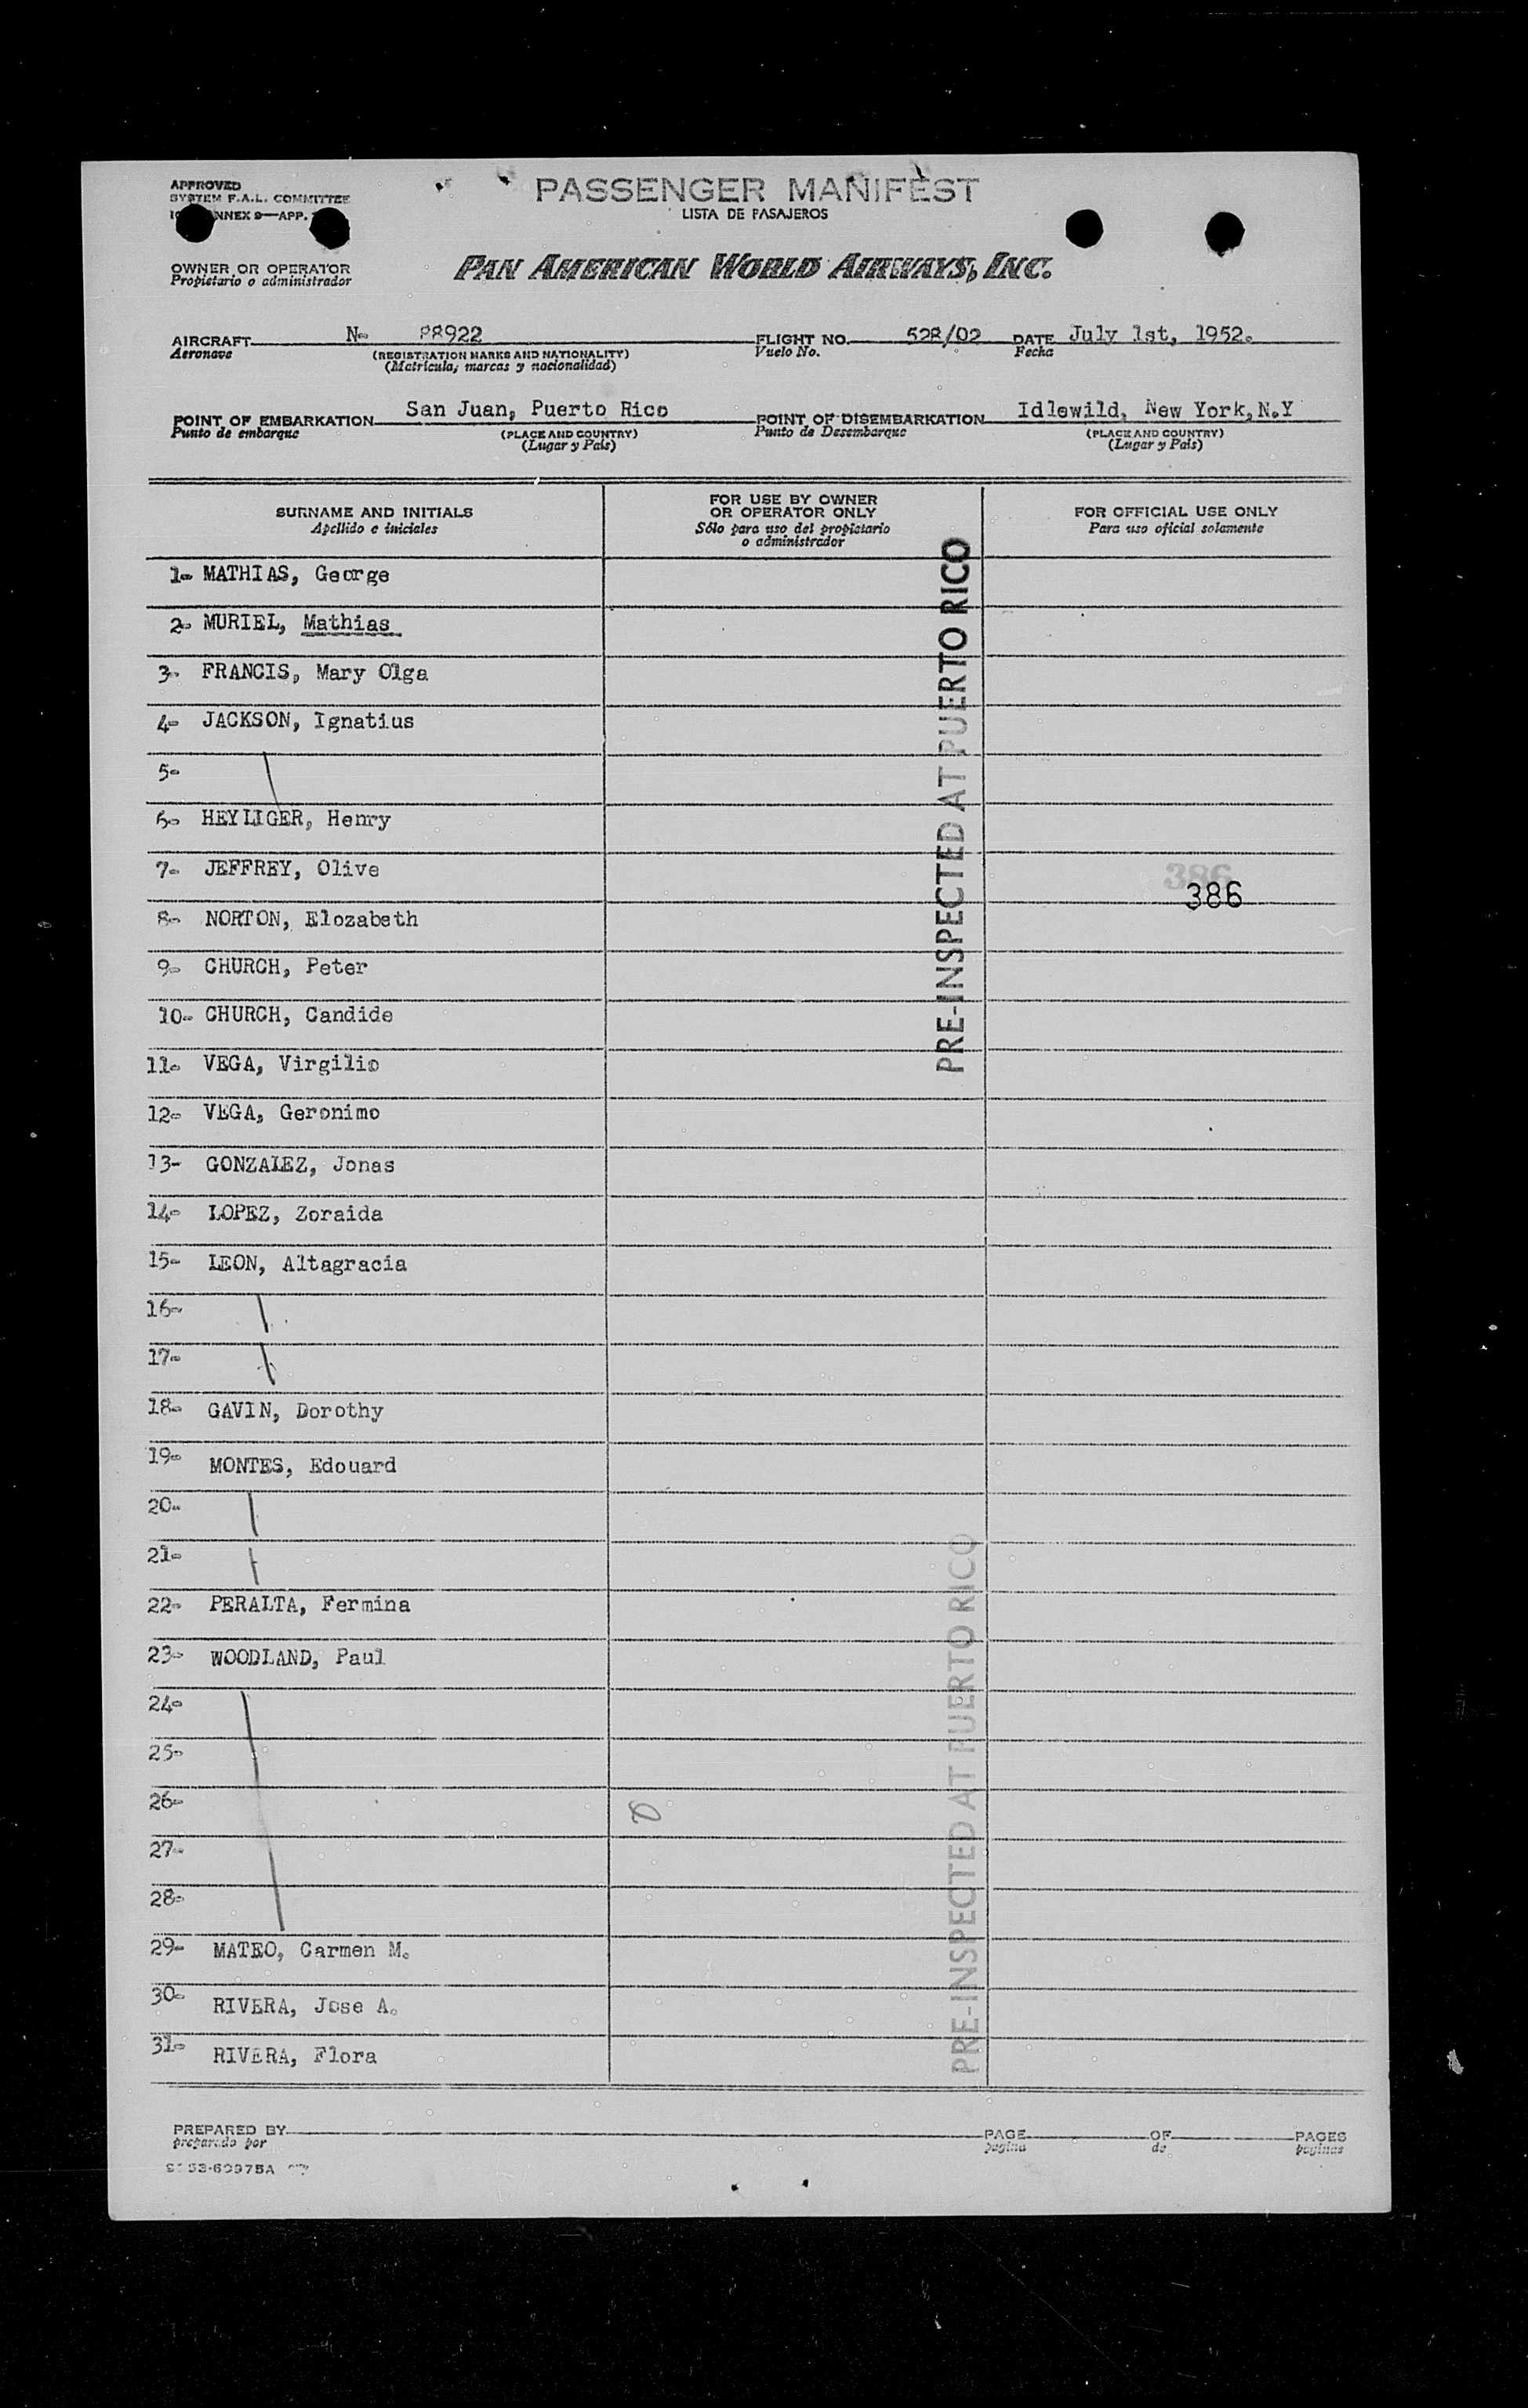 APPROVED
SYSTEM F.A.L. COMMITTEE
ANNEX 9—APP.
PASSENGER MANIFEST
LISTA DE PASAJEROS
OWNER OR OPERATOR
Propietario o administrador
PAN AMERICAN WORLD AIRWAYS, INC.
AIRCRAFT N- 88922 FLIGHT NO. 528/02 DATE July 1st, 1952.
Aeronave (REGISTRATION MARKS AND NATIONALITY) Vuelo No. Fecha
(Matricula, marcas y nacionalidad)
POINT OF EMBARKATION San Juan, Puerto Rico POINT OF DISEMBARKATION Idlewild, New York,N.Y
Punto de embarque (PLACE AND COUNTRY) Punto de Desembarque (PLACE AND COUNTRY)
(Lugar y País) (Lugar y País)
SURNAME AND INITIALS
Apellido e iniciales
FOR USE BY OWNER
OR OPERATOR ONLY
Sólo para uso del propietario
o administrador
FOR OFFICIAL USE ONLY
Para uso oficial solamente
1- MATHIAS, George
2- MURIEL, Mathias
3- FRANCIS, Mary Olga
4- JACKSON, Ignatius
5-
6- HEYLIGER, Henry
7- JEFFREY, Olive
386
386
8- NORTON, Elozabeth
9- CHURCH, Peter
10- CHURCH, Candide
11- VEGA, Virgilio
12- VEGA, Geronimo
13- GONZALEZ, Jonas
14- LOPEZ, Zoraida
15- LEON, Altagracia
16-
17-
18- GAVIN, Dorothy
19- MONTES, Edouard
20-
21-
22- PERALTA, Fermina
23- WOODLAND, Paul
24-
25-
26-
27-
28-
29- MATEO, Carmen M.
30- RIVERA, Jose A.
31- RIVERA, Flora
PRE-INSPECTED AT PUERTO RICO
PRE-INSPECTED AT PUERTO RICO
PREPARED BY PAGE OF PAGES
preparado por pagina de paginas